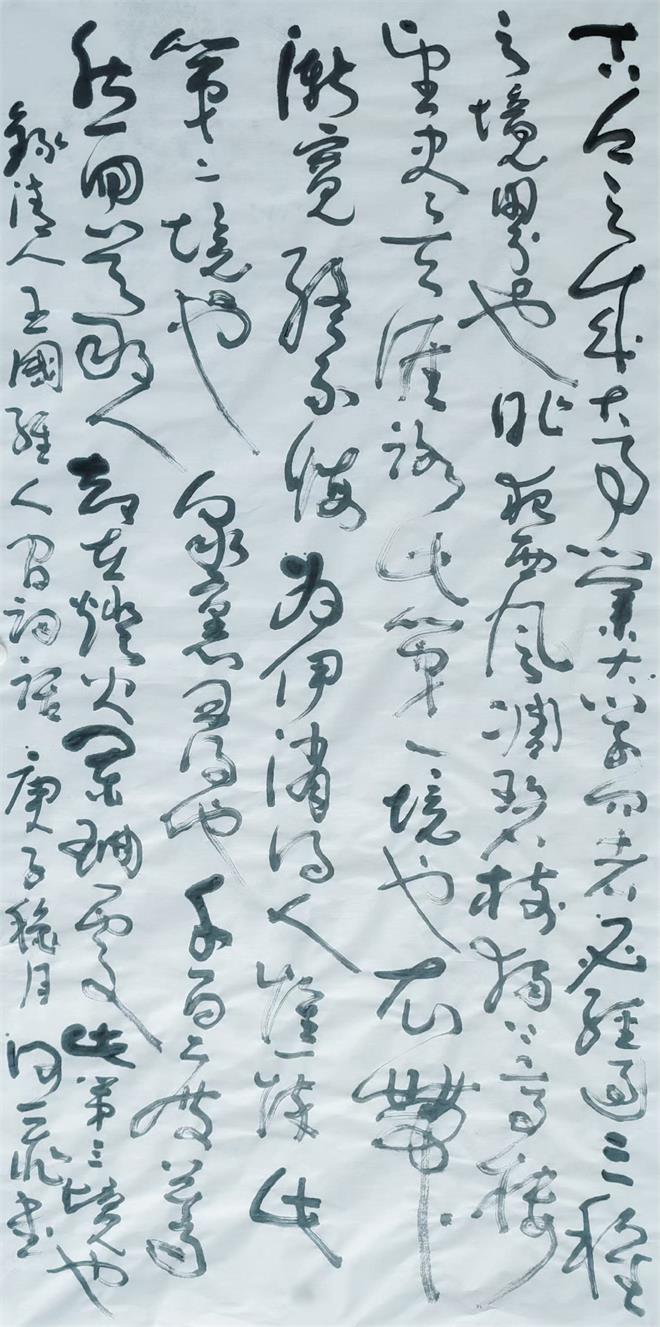 古今之成大事業大學問者必經過三種
之境界也昨夜西風凋碧樹獨上高樓
望盡天涯路此第一境也衣帶
漸寬終不悔為伊消得人憔悴此
第二境也眾裏尋他千百度驀
然回首那人却在燈火闌珊處此第三境也
錄清人王國維人間詞話庚子穐月書